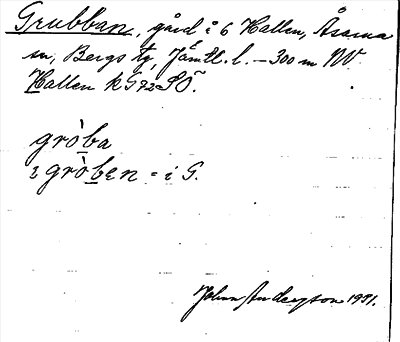 Grubban, gård i 6 Hallen, Åsarna
sn, Bergs tg, Jämtl. l. – 300 m NV
Hallen k G 72 SO.
gròba
i gròben = i G.
Johan Anderzson 1931.